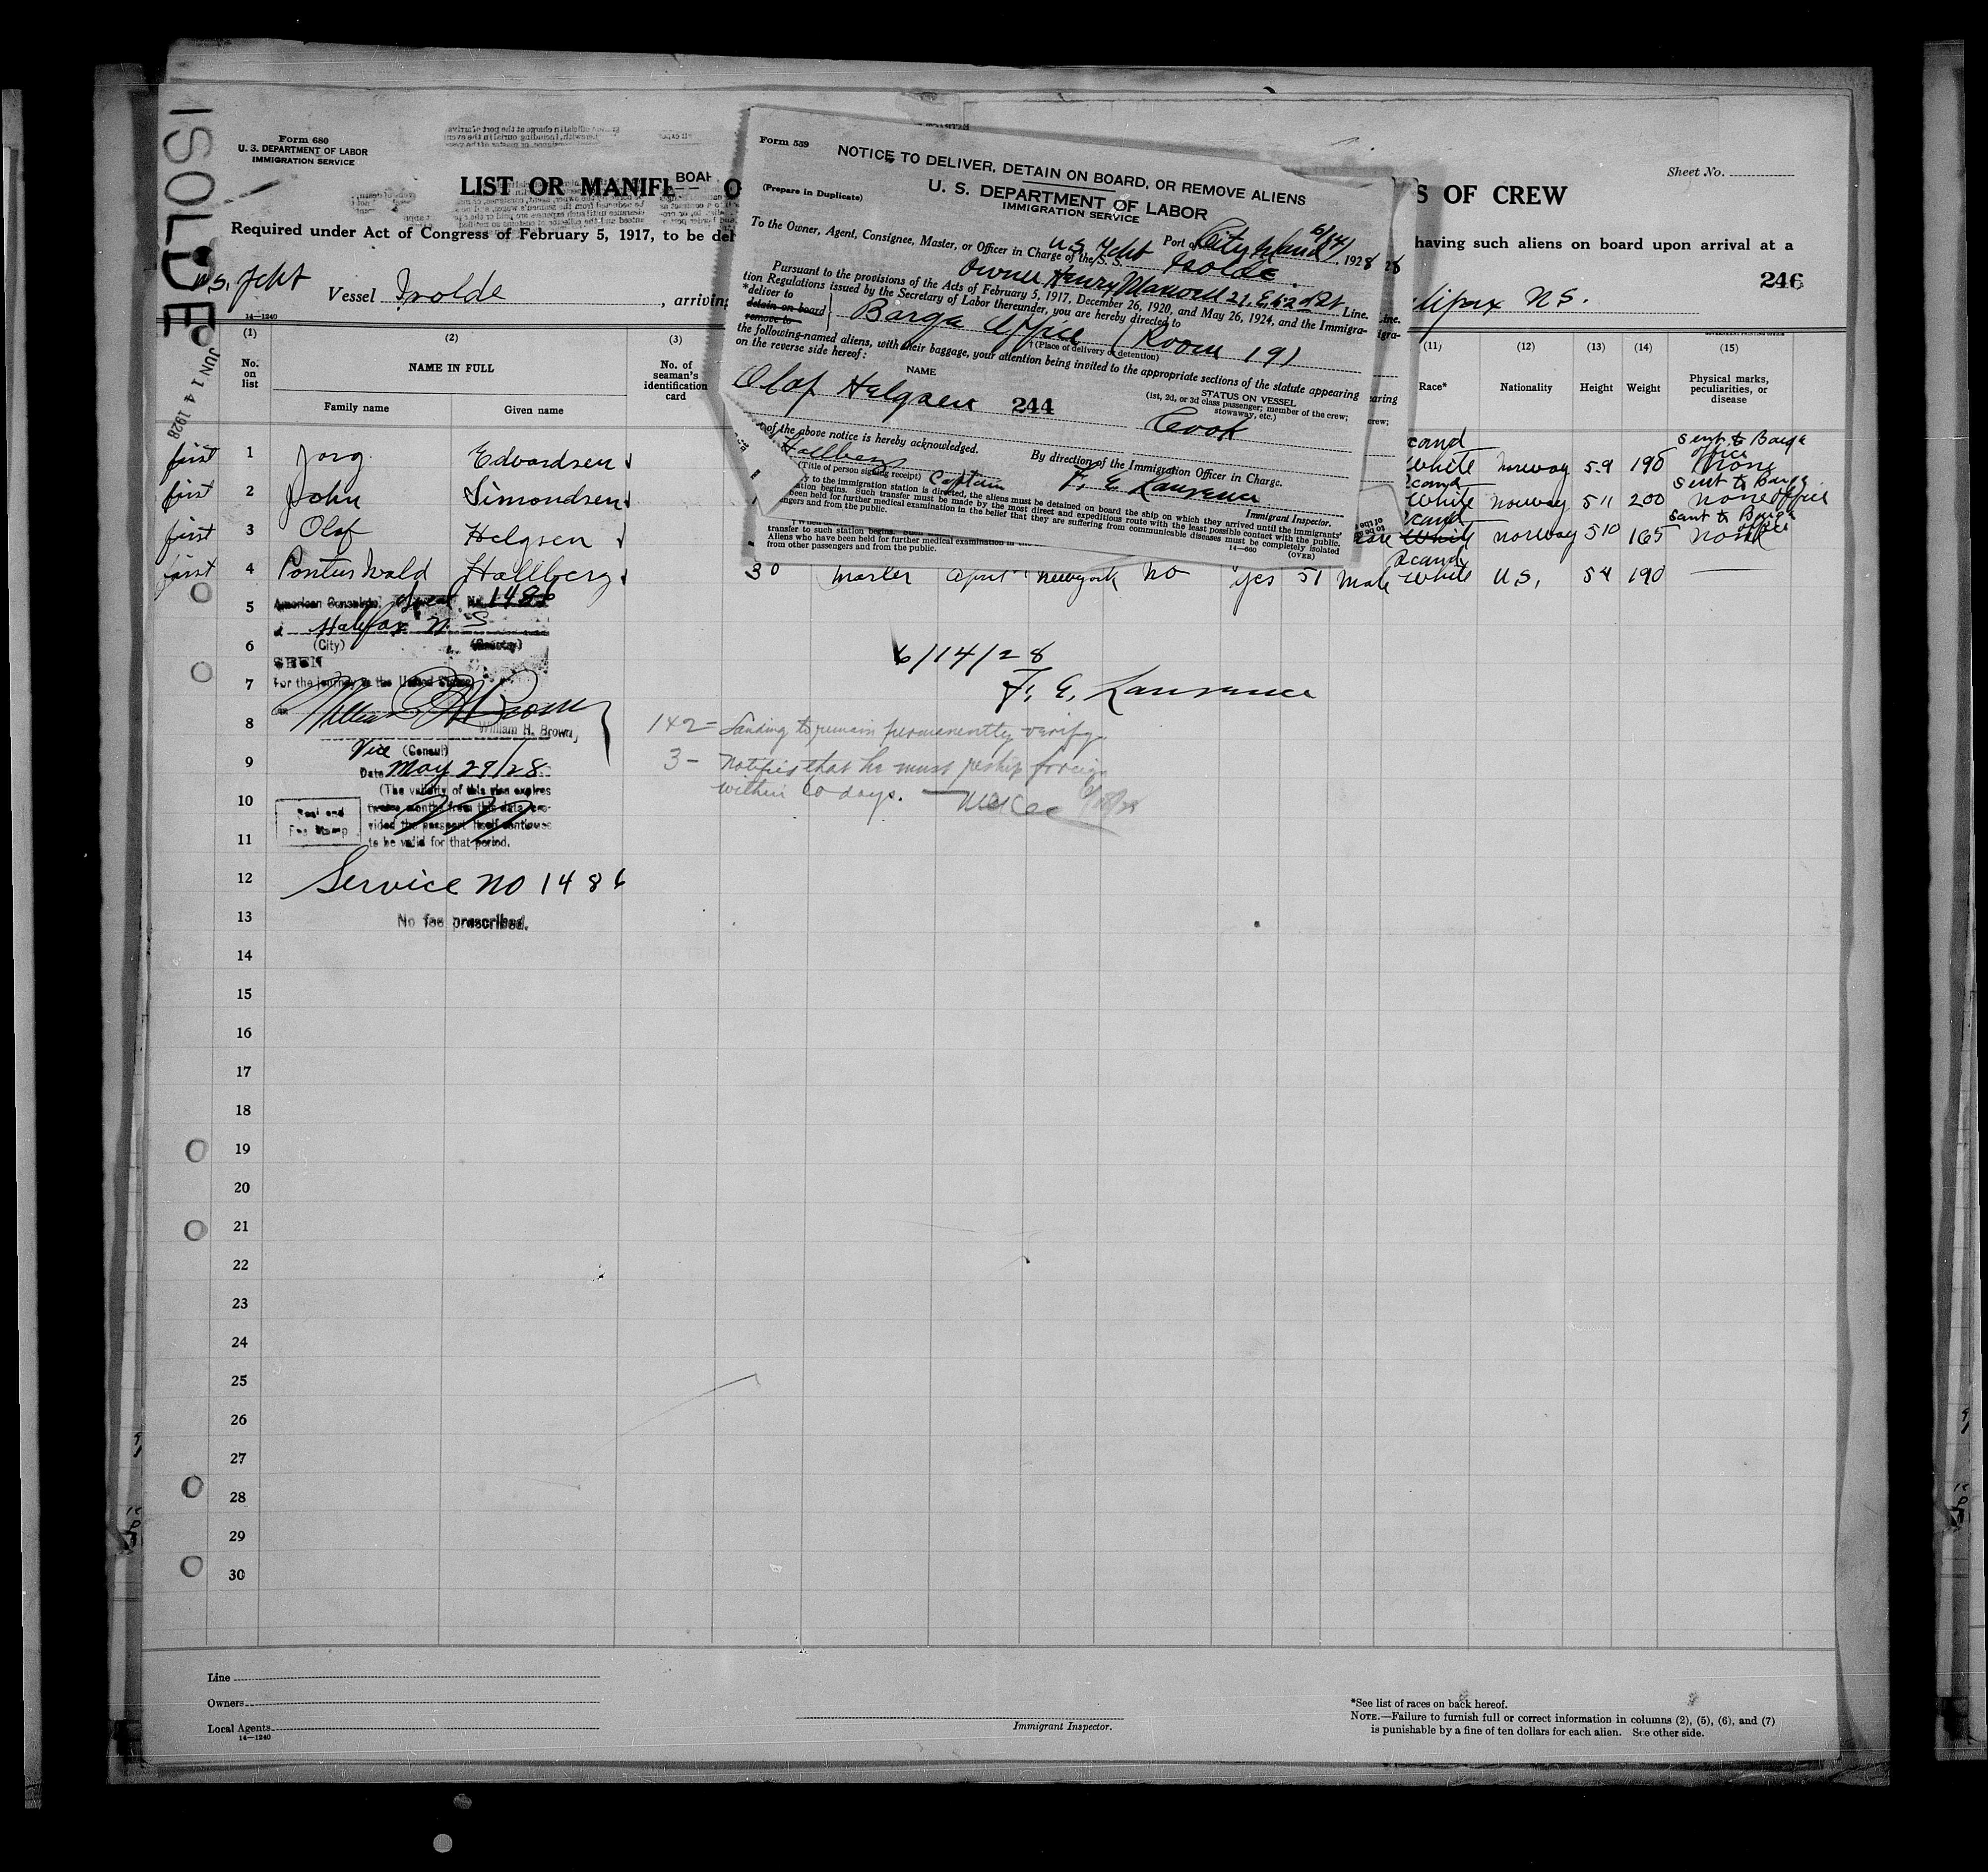 ISOLDE
JUN 14 1928
Form 680
U. S. DEPARTMENT OF LABOR
IMMIGRATION SERVICE
LIST OR MANIFE
BOAR
O
S OF CREW
Sheet No.
Required under Act of Congress of February 5, 1917, to be del
having such aliens on board upon arrival at a
246
U.S. Ycht Vessel Isolde , arriving
lifax N S.
14—1240
Form 559
NOTICE TO DELIVER, DETAIN ON BOARD, OR REMOVE ALIENS
(Prepare in Duplicate)
U. S. DEPARTMENT OF LABOR
IMMIGRATION SERVICE
Port of City Island 6/14/ , 1928
To the Owner, Agent, Consignee, Master, or Officer in Charge of the S. S. U.S. Ycht Isolde
Owner Henry Maxwell 21. E. 52d St Line.
Pursuant to the provisions of the Acts of February 5, 1917, December 26, 1920, and May 26, 1924, and the Immigra-
tion Regulations issued by the Secretary of Labor thereunder, you are hereby directed to
*deliver to
detain on board
remove to
Barge Office (Room 19)
†(Place of delivery or detention)
the following-named aliens, with their baggage, your attention being invited to the appropriate sections of the statute appearing
on the reverse side hereof:
NAME
STATUS ON VESSEL
(1st, 2d, or 3d class passenger; member of the crew;
stowaway, etc.)
Olaf Helgsen 244 Cook
of the above notice is hereby acknowledged.
By direction of the Immigration Officer in Charge.
Hallberg
(Title of person signing receipt) Captain
F. E. Laurence
Immigrant Inspector.
ry to the immigration station is directed, the aliens must be detained on board the ship on which they arrived until the immigrants'
ation begins. Such transfer must be made by the most direct and expeditious route with the least possible contact with the public.
been held for further medical examination in the belief that they are suffering from communicable diseases must be completely isolated
ngers and from the public.
14—660
(OVER)
transfer to such station begins. Such
Aliens who have been held for further medical examination in
from other passengers and from the public.
(1) (2) (3) (11) (12) (13) (14) (15)
No. on list
NAME IN FULL
Family name Given name
No. of seaman's identification card
Race* Nationality Height Weight
Physical marks, peculiarities, or disease
first 1 Jorg Edvardsen Scand White Norway 5 9 190 Sent to Barge office None
first 2 John Simondsen Scand White Norway 5 11 200 Sent to Barge office none
first 3 Olaf Helgsen Scand White Norway 5 10 165 Sent to Barge office None
first 4 Pontus Wald Hallberg 30 Master April New York No Yes 51 Male Scand White U.S. 5 4 190 —
5
American Consulate No. 1486
Halifax N. S
6
(City) (Country)
SEEN
7
For the journey to the United States
8
William H. Brown
William H. Brown
Vice (Consul)
9
Date May 29/28
(The validity of this visa expires
10
twelve months from this date pro-
Seal and
Fee Stamp
vided the passport itself continues
11
to be valid for that period.
12 Service No 1486
13
No fee prescribed.
6/14/28
F. E. Laurence
1 & 2 = Landing to remain permanently verify.
3 – Notified that he must reship foreign
within 60 days.
14
15
16
17
18
19
20
21
22
23
24
25
26
27
28
29
30
Line
Owners
Local Agents
14—1240
Immigrant Inspector.
*See list of races on back hereof.
NOTE.—Failure to furnish full or correct information in columns (2), (5), (6), and (7)
is punishable by a fine of ten dollars for each alien. See other side.